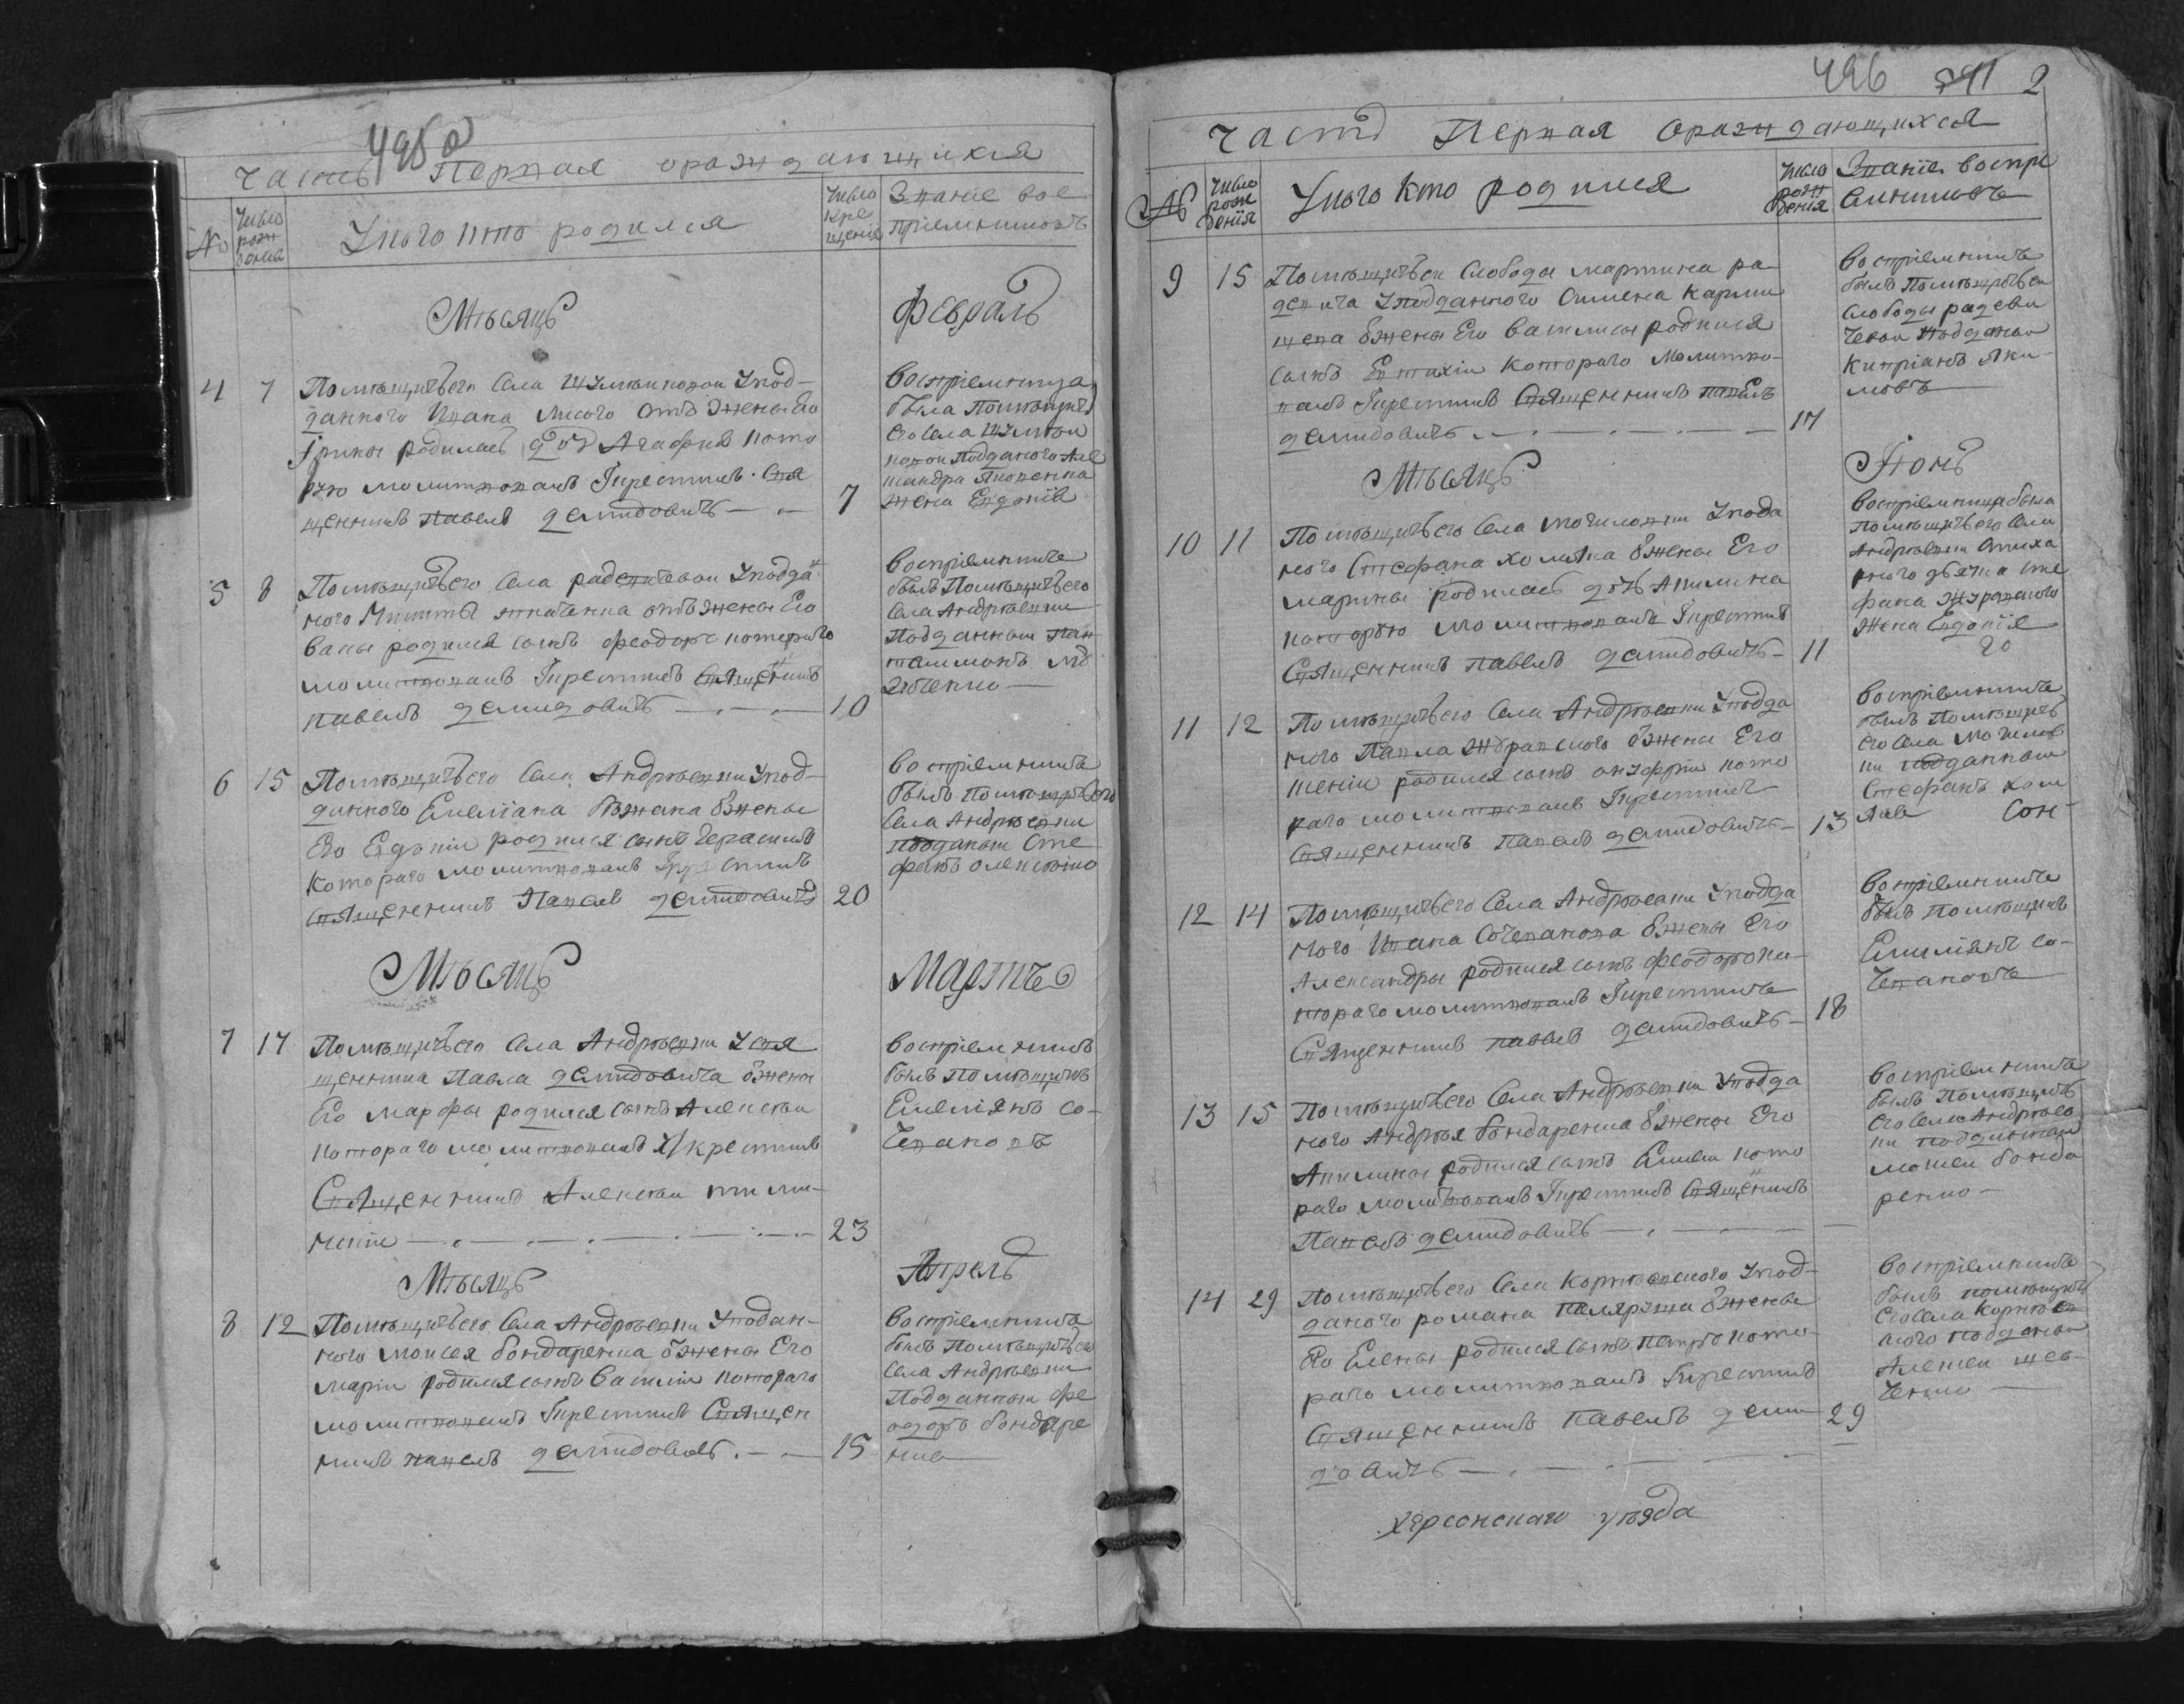 495 об
часть Первая ораждающихся
№
Число рождения
У кого кто родился
Число крещения
Званіе восприемниковъ
Мѣсяцъ
Февраль
4 7 Помѣщичьего Села Шумилиновой Упод-
данного Ивана Лисого отъ Жены Его
Ірины родилась дочь Агафия кото
рую молитвовалъ Їкрестилъ Свя
щенникъ Павелъ демидовичъ
7
Восприемница
была Помѣщичь
его Села
подданого Але
ксандра
Жена Евдокія
5 8 Помѣщичьего Села радевичевой Уподдан
ного Никиты ткаченка отъ жены Его
Васы родился сынъ феодоръ которого
молитвовалъ Їкрестилъ Священикъ
павелъ демидовичъ
10
Восприемникъ
былъ Помѣщичьего
Села Андрѣевки
Подданный Пан
телимонъ
6 15 Помѣщичьего Села Андрѣевки Упод-
данного Емелiана бѣжана бжены
Его Евдокіи родился сынъ Герасимъ
Которого молитвовалъ Їкрестилъ
Священникъ Павелъ демидовичъ
20
Восприемникъ
былъ Помѣщичьего
Села Андрѣевки
подданый Сте
фанъ олексѣнко
Мѣсяцъ
Мартъ
7 17 Помѣщичьего Села Андрѣевки У свя
щенника Павла демидовича бжены
Его марфы родился сынъ Алексѣй
которого молитвовалъ И крестилъ
Священникъ Алексѣй
23
Восприемникъ
былъ Помѣщикъ
Емелiянъ Со-
чевановъ
Мѣсяцъ
Апрель
8 12 Помѣщичьего Села Андрѣевки Уподан-
ного моисея бондаренка бжены Его
маріи родился сынъ Василій которого
молитвовалъ Їкрестилъ Священ
никъ павелъ демидовичъ
15
Восприемникъ
былъ Помѣщичьего
Села Андрѣевки
Подданный Фе
одоръ бондаре
нко
496 2
Часть Первая ораждающихся
№
Число рождения
У кого кто родился
Число рожденія
Званіе воспріемниковъ
9 15 Помѣщичьей Слободы мартина ра
девича Уподданного Симена Карпи
щева бжены Его Василисы родился
сынъ Евтихій Которого Молитво-
валъ Їкрестилъ Священникъ павелъ
демидовичъ
17
Восприемникъ
былъ Помѣщичьей
Слободы радеви
чевой подданый
Кипріянъ Яки-
мовъ
Мѣсяцъ
Іюнь
10 11 Помѣщичьего Села могиловки Упода
ного Стефана хомяка бжены Его
марины родилась дочь Акилина
которую молитвовалъ Їкрестилъ
Священникъ павелъ демидовичъ
11
Восприемница была
помѣщичьего Села
Андрѣевки
дьячка Сте
фана Журавского
Жена Евдокія
20
11 12 Помѣщичьего Села Андрѣевки Уподда
ного Павла Журавского бжены Его
Ксеніи родился сынъ онуфрій кото
раго молитвовалъ Їкрестилъ
Священникъ Павелъ демидовичъ
13
Восприемникъ
былъ Помѣщичь
его Села Могилов
ки подданный
Стефанъ хом
якъ
12 14 Помѣщичьего Села Андрѣевки Уподда
ного Ивана Сочеванова бжены Его
Александры родился сынъ феодоръ ко-
тораго молитвовалъ Їкрестилъ
Священникъ павелъ демидовичъ
18
Восприемникъ
былъ Помѣщикъ
Емилiянъ Со-
чевановъ
13 15 Помѣщичьего Села Андрѣевки Уподда
ного Андрѣя бондаренка бжены Его
Акилины родился сынъ Елисей кото
раго молитвовалъ Їкрестилъ Священикъ
Павелъ демидовичъ
Восприемникъ
былъ Помѣщичь
его Села Андрѣев
ки подданный
мойсей бонда
ренко
14 29 Помѣщичьего Села Корнѣевского Упод-
даного романа бжены
Его Елены родился сынъ петръ кото-
раго молитвовалъ Їкрестилъ
Священникъ Павелъ деми
довичъ
29
Восприемникъ
былъ помѣщичь
его Села Корнѣев
ского подданый
Алексей шев-
ченко
херсонскаго уѣзда